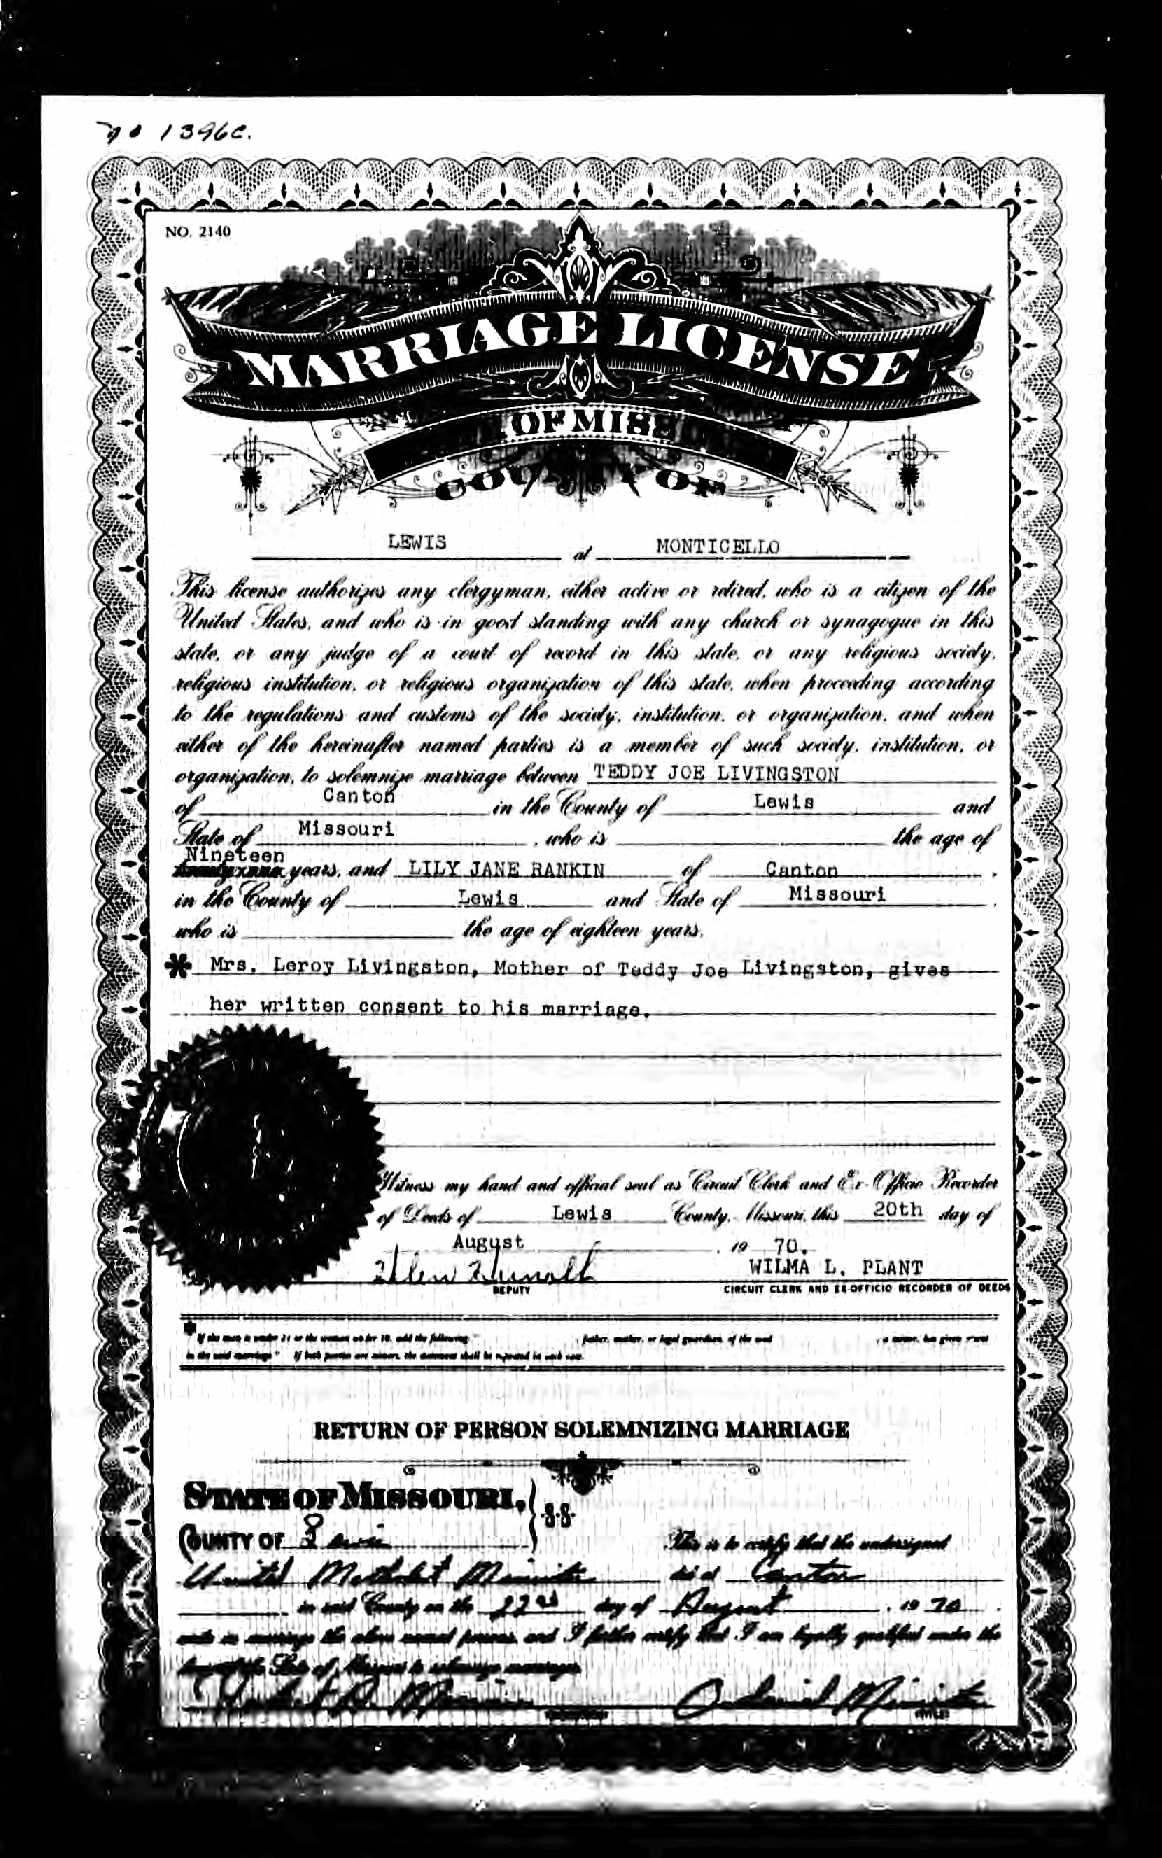 no 1396C.
NO. 2140
MARRIAGE LICENSE
OF
COUNTY OF
LEWIS at MONTICELLO
This license authorizes any clergyman, either active or retired, who is a citizen of the
United States, and who is in good standing with any church or synagogue in this
state, or any judge of a court of record in this state, or any religious society,
religious institution, or religious organization of this state, when proceeding according
to the regulations and customs of the society, institution, or organization, and when
either of the hereinafter named parties is a member of such society, institution, or
organization, to solemnize marriage between TEDDY JOE LIVINGSTON
of Canton in the County of Lewis and
State of Missouri, who is the age of
Nineteen years, and LILY JANE RANKIN of Canton,
in the County of Lewis and State of Missouri,
who is the age of eighteen years.
* Mrs. Leroy Livingston, Mother of Teddy Joe Livingston, gives
her written consent to his marriage.
Witness my hand and official seal as Circuit Clerk and Ex-Officio Recorder
of Deeds of Lewis County, Missouri, this 20th day of
August, 19 70.
WILMA L. PLANT
DEPUTY CIRCUIT CLERK AND EX-OFFICIO RECORDER OF DEEDS
* If the man is under 21 or the woman under 18, add the following: father, mother, or legal guardian, of the said , a minor, has given
to the said marriage." If both parties are minors, the statement shall be repeated in each case.
RETURN OF PERSON SOLEMNIZING MARRIAGE
STATE OF MISSOURI, } SS
COUNTY OF Lewis This is to certify that the undersigned
United Methodist Minister did at Canton
in said County on the 22nd day of August, 19 70,
unite in marriage the above named persons, and I further certify that I am legally qualified under the
laws of the State of Missouri to solemnize marriages.
Ordained Minister